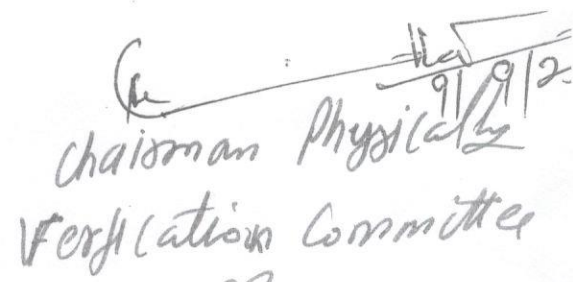 9/9/2
Chairman Physically
Verfication Committee